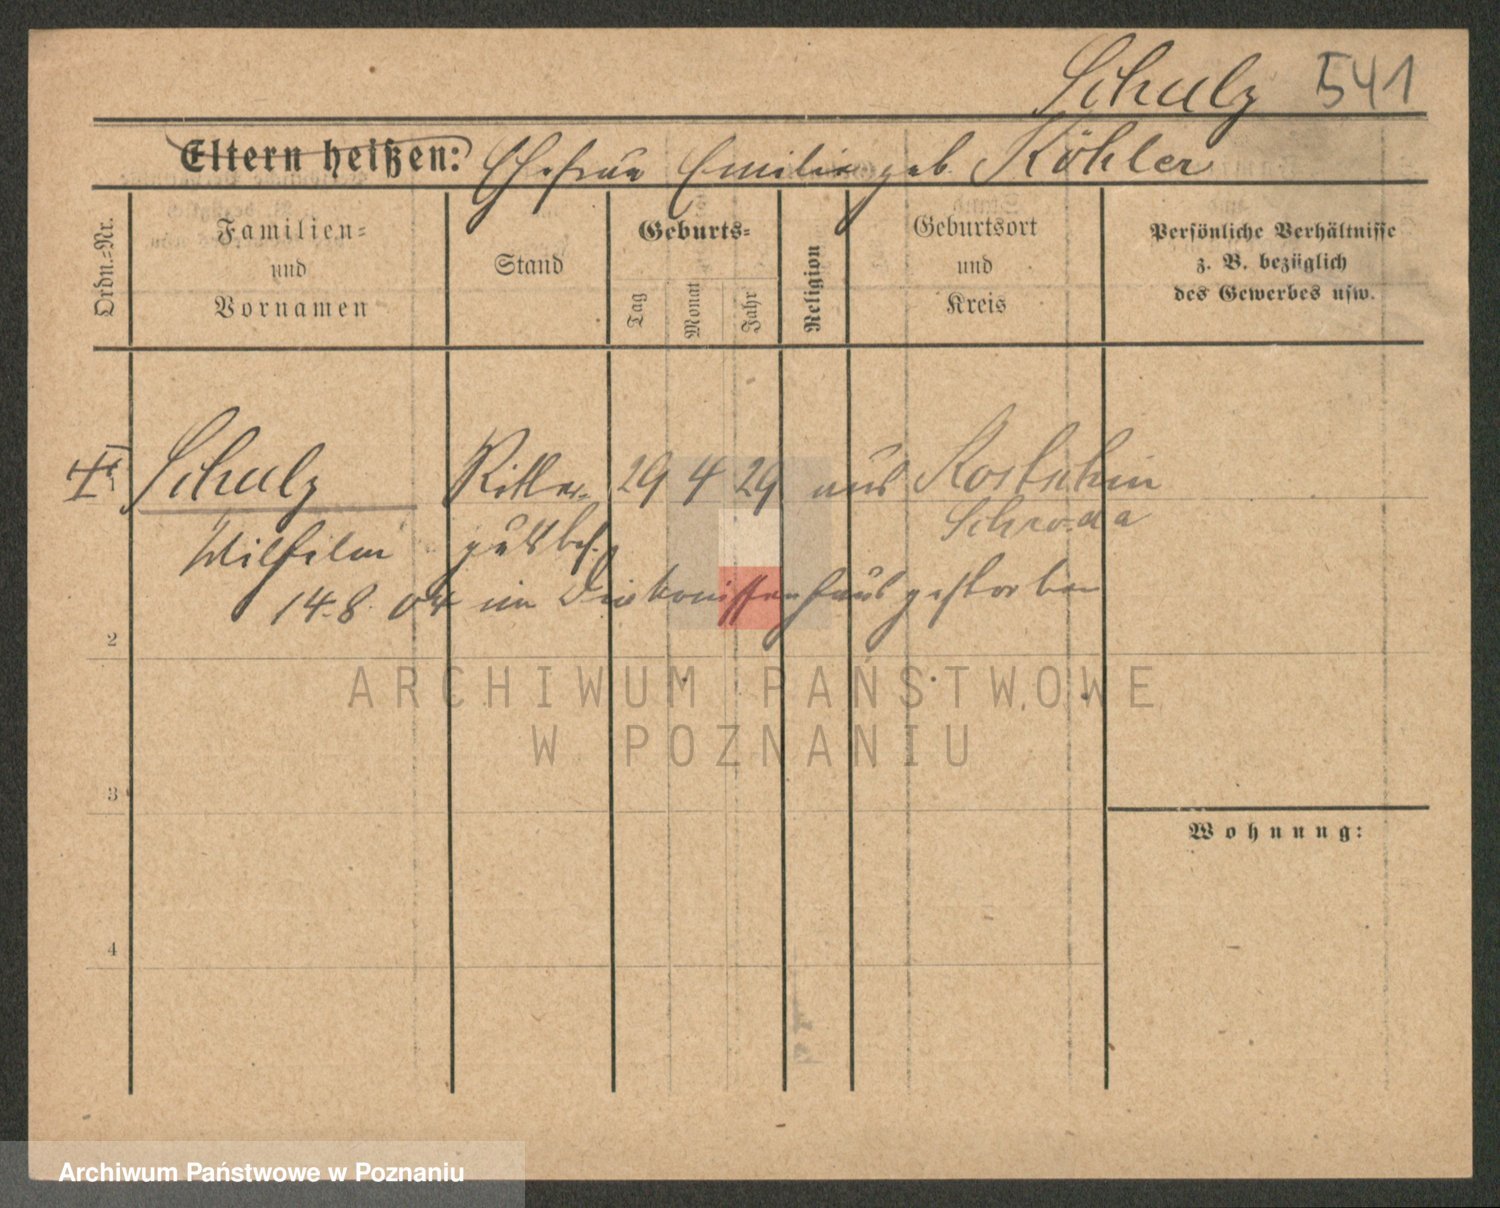 Schulz 541
Eltern heißen: Ehefrau Emilie geb. Köhler
Ordn.-Nr.
Familien-
und
Vornamen
Stand
Geburts-
Tag
Monat
Jahr
Religion
Geburtsort
und
Kreis
Persönliche Verhältnisse
z. B. bezüglich
des Gewerbes usw.
Schulz Ritter- 29 4 29 aus Kostschin
Wilhelm gutsbes. Schroda
14.8.04 im Diakonissenhaus gestorben
2
3
4
Wohnung:
ARCHIWUM PAŃSTWOWE
W POZNANIU
Archiwum Państwowe w Poznaniu